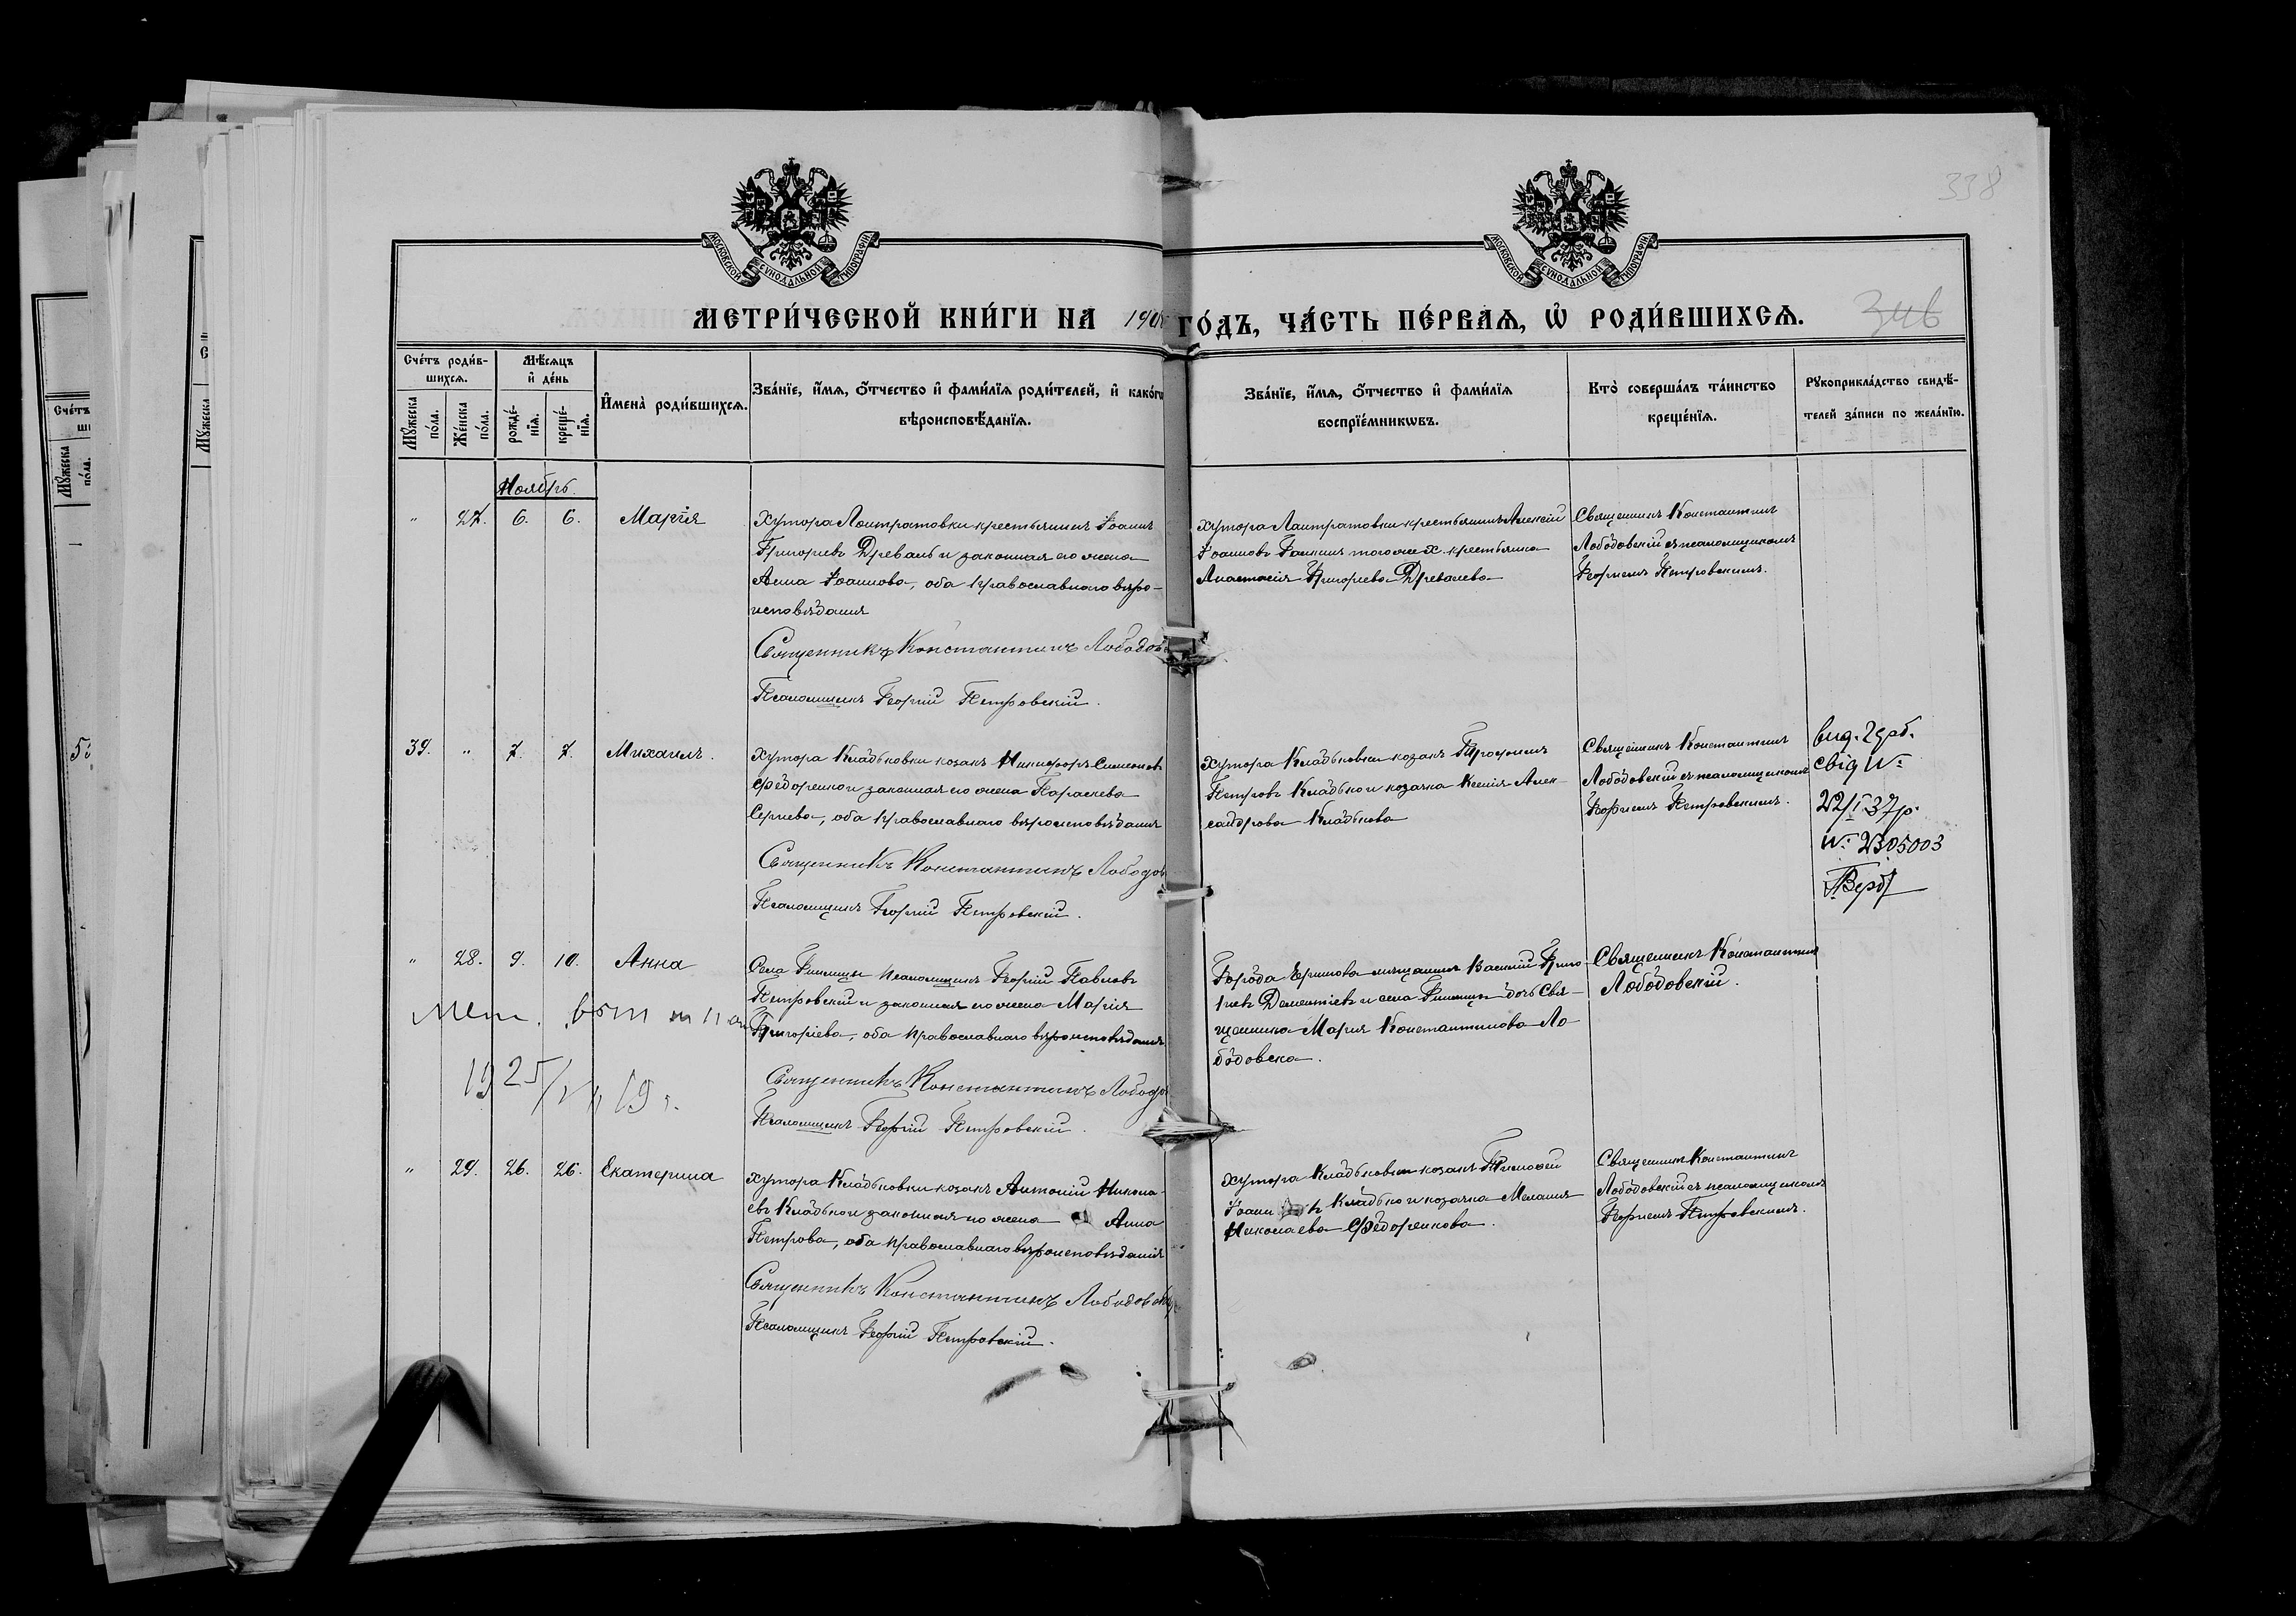 338
МОСКОВСКОЙ СѴНОДАЛЬНОЙ ТИПОГРАФІИ
МОСКОВСКОЙ СѴНОДАЛЬНОЙ ТИПОГРАФІИ
МЕТРИ́ЧЕСКОЙ КНИ́ГИ НА ГО́ДЪ, ЧА́СТЬ ПЕ́РВАѦ, Ѡ҆ РОДИ́ВШИХСѦ.
Сче́тъ роди́в-
шихсѧ.
Мꙋ́жеска по́ла.
Же́нска по́ла.
Мѣ́сѧцъ
и҆ де́нь
рожде́-
нїѧ.
креще́-
нїѧ.
И҆мена̀ роди́вшихсѧ.
Зва́нїе, и҆́мѧ, ѻ҆́тчество и҆ фами́лїѧ роди́телей, и҆ како́гѡ
вѣроисповѣ́данїѧ.
Зва́нїе, и҆́мѧ, ѻ҆́тчество и҆ фами́лїѧ
воспрїе́мникѡвъ.
Кто̀ соверша́лъ та́инство
креще́нїѧ.
Рꙋкоприкла́дство свидѣ́-
телей за́писи по жела́нїю.
Ноябрь.
" 27. 6. 6. Марія
Хутора Лаитратовки крестьянинъ Іоаннъ
Григорievъ Древаль и законная его жена
Анна Іоаннова, оба православнаго вѣро-
исповѣданія
Священникъ Константинъ Лободов
Псаломщикъ Георгій Петровскій.
хутора Лаитратовки крестьянинъ Алексій
Іоанновъ Галкинъ того же х. крестьянка
Анастасія Григорьева Древалева
Священникъ Константинъ
Лободовскій съ псаломщикомъ
Георгіемъ Петровскимъ.
39. " 7. 7. Михаилъ.
хутора Кладьковки козакъ Никифоръ Симеоновъ
Федоренко и законная его жена Параскева
Сергіева, оба православнаго вѣроисповѣданія
Священникъ Константинъ Лободов
Псаломщикъ Георгій Петровскій.
хутора Кладьковки козакъ Трофимъ
Петровъ Кладько и козачка Ксенія Алек-
сандрова Кладькова
Священникъ Константинъ
Лободовскій съ псаломщикомъ
Георгіемъ Петровскимъ.
свід №
22/I 37р.
№ 2305003
" 28. 9. 10. Анна
Села псаломщикъ Георгій Павловъ
Петровскій и законная его жена Марія
Григоріева, оба православнаго вѣроисповѣданія
Священникъ Константинъ Лободов
Псаломщикъ Георгій Петровскій.
Города мѣщанинъ Василій Григо-
ріевъ Дементіевъ и села дочь Свя-
щенника Марія Константинова Ло-
бодовска.
Священникъ Константинъ
Лободовскій.
19 25/ 19 г.
" 29. 26. 26. Екатерина
хутора Кладьковки козакъ Антоній Никола-
евъ Кладько и законная его жена Анна
Петрова, оба православнаго вѣроисповѣданія
Священникъ Константинъ Лободовскій
Псаломщикъ Георгій Петровскій.
хутора Кладьковки козакъ Тимофей
Кладько и козачка Меланія
Николаева Федоренкова.
Священникъ Константинъ
Лободовскій съ псаломщикомъ
Георгіемъ Петровскимъ.